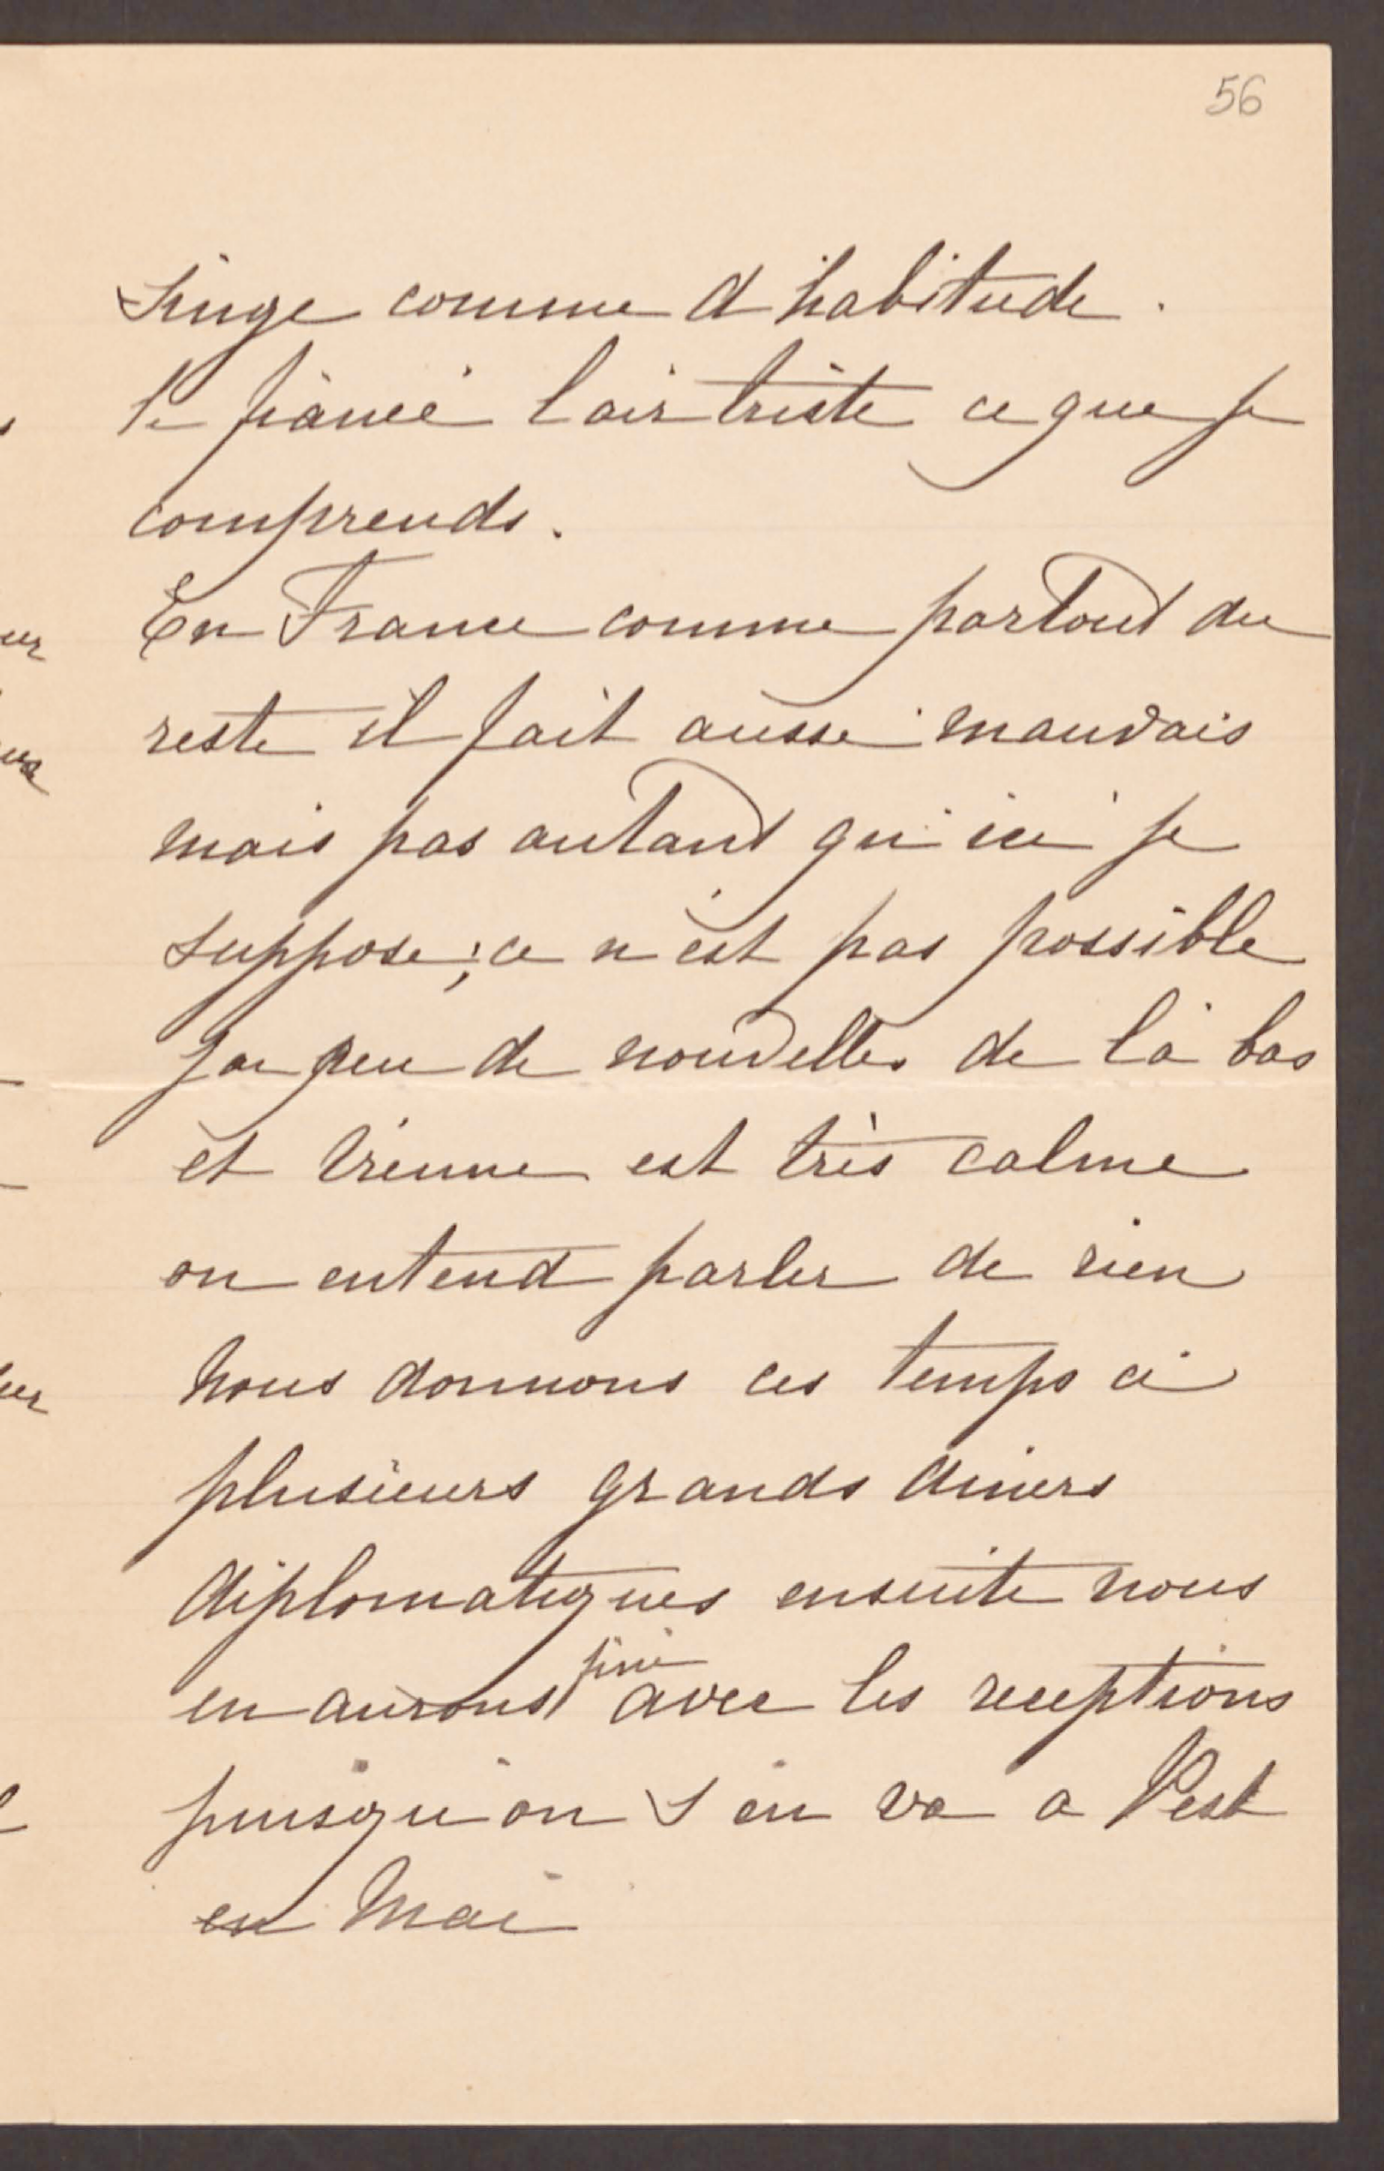 56
singe comme d'habitude.
le fiancé l'air triste ce que je
comprends.
En France comme partout du
reste il fait aussi mauvais
mais pas autant qu'ici je
suppose; ce n'est pas possible
J'ai peu de nouvelles de là bas
et Vienne est très calme
on entend parler de rien
Nous donnons ces temps ci
plusieurs grands diners
diplomatiques ensuite nous
en aurons fini avec les receptions
puisqu'on s'en va a Pest
en Mai